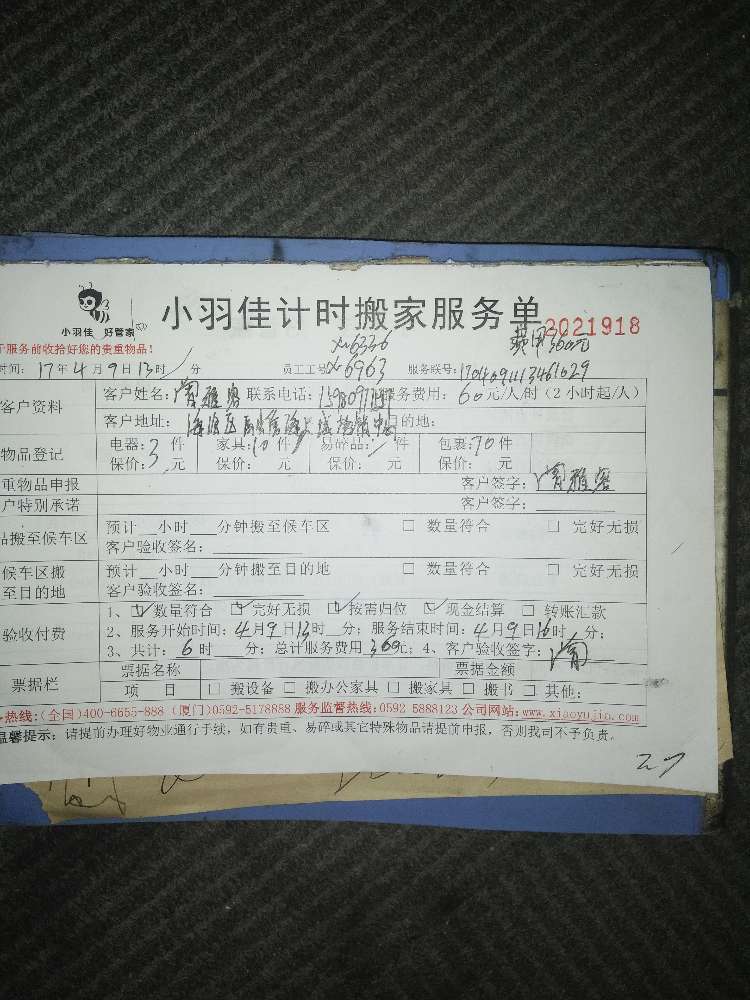 小羽佳 好管家
小羽佳计时搬家服务单
2021918
费用360元
服务前收拾好您的贵重物品!
x-6336
时间: 17年4月9日13时 分 员工工号x-6963 服务联号:
客户资料 客户姓名: 联系电话: 服务费用: 60元/人/时(2小时起/人)
客户地址: 海沧区 目的地:
物品登记 电器:3件 家具:10件 易碎品: 件 包裹:70件
保价: 元 保价: 元 保价: 元 保价: 元
重物品申报 客户签字:
户特别承诺 客户签字:
品搬至候车区 预计 小时 分钟搬至候车区 □ 数量符合 □ 完好无损
客户验收签名:
候车区搬至目的地 预计 小时 分钟搬至目的地 □ 数量符合 □ 完好无损
客户验收签名:
验收付费 1、☑数量符合 ☑完好无损 ☑按需归位 ☑现金结算 □ 转账汇款
2、服务开始时间:4月9日13时 分; 服务结束时间:4月9日16时 分;
3、共计: 6时 分; 总计服务费用360元; 4、客户验收签字:
票据栏 票据名称 票据金额
项 目 □ 搬设备 □ 搬办公家具 □ 搬家具 □ 搬书 □ 其他:
热线:(全国)400-6655-888 (厦门)0592-5178858 服务监督热线:0592 5888123 公司网站:www.xiaoyujia.com
温馨提示: 请提前办理好物业通行手续,如有贵重、易碎或其它特殊物品请提前申报,否则我司不予负责。